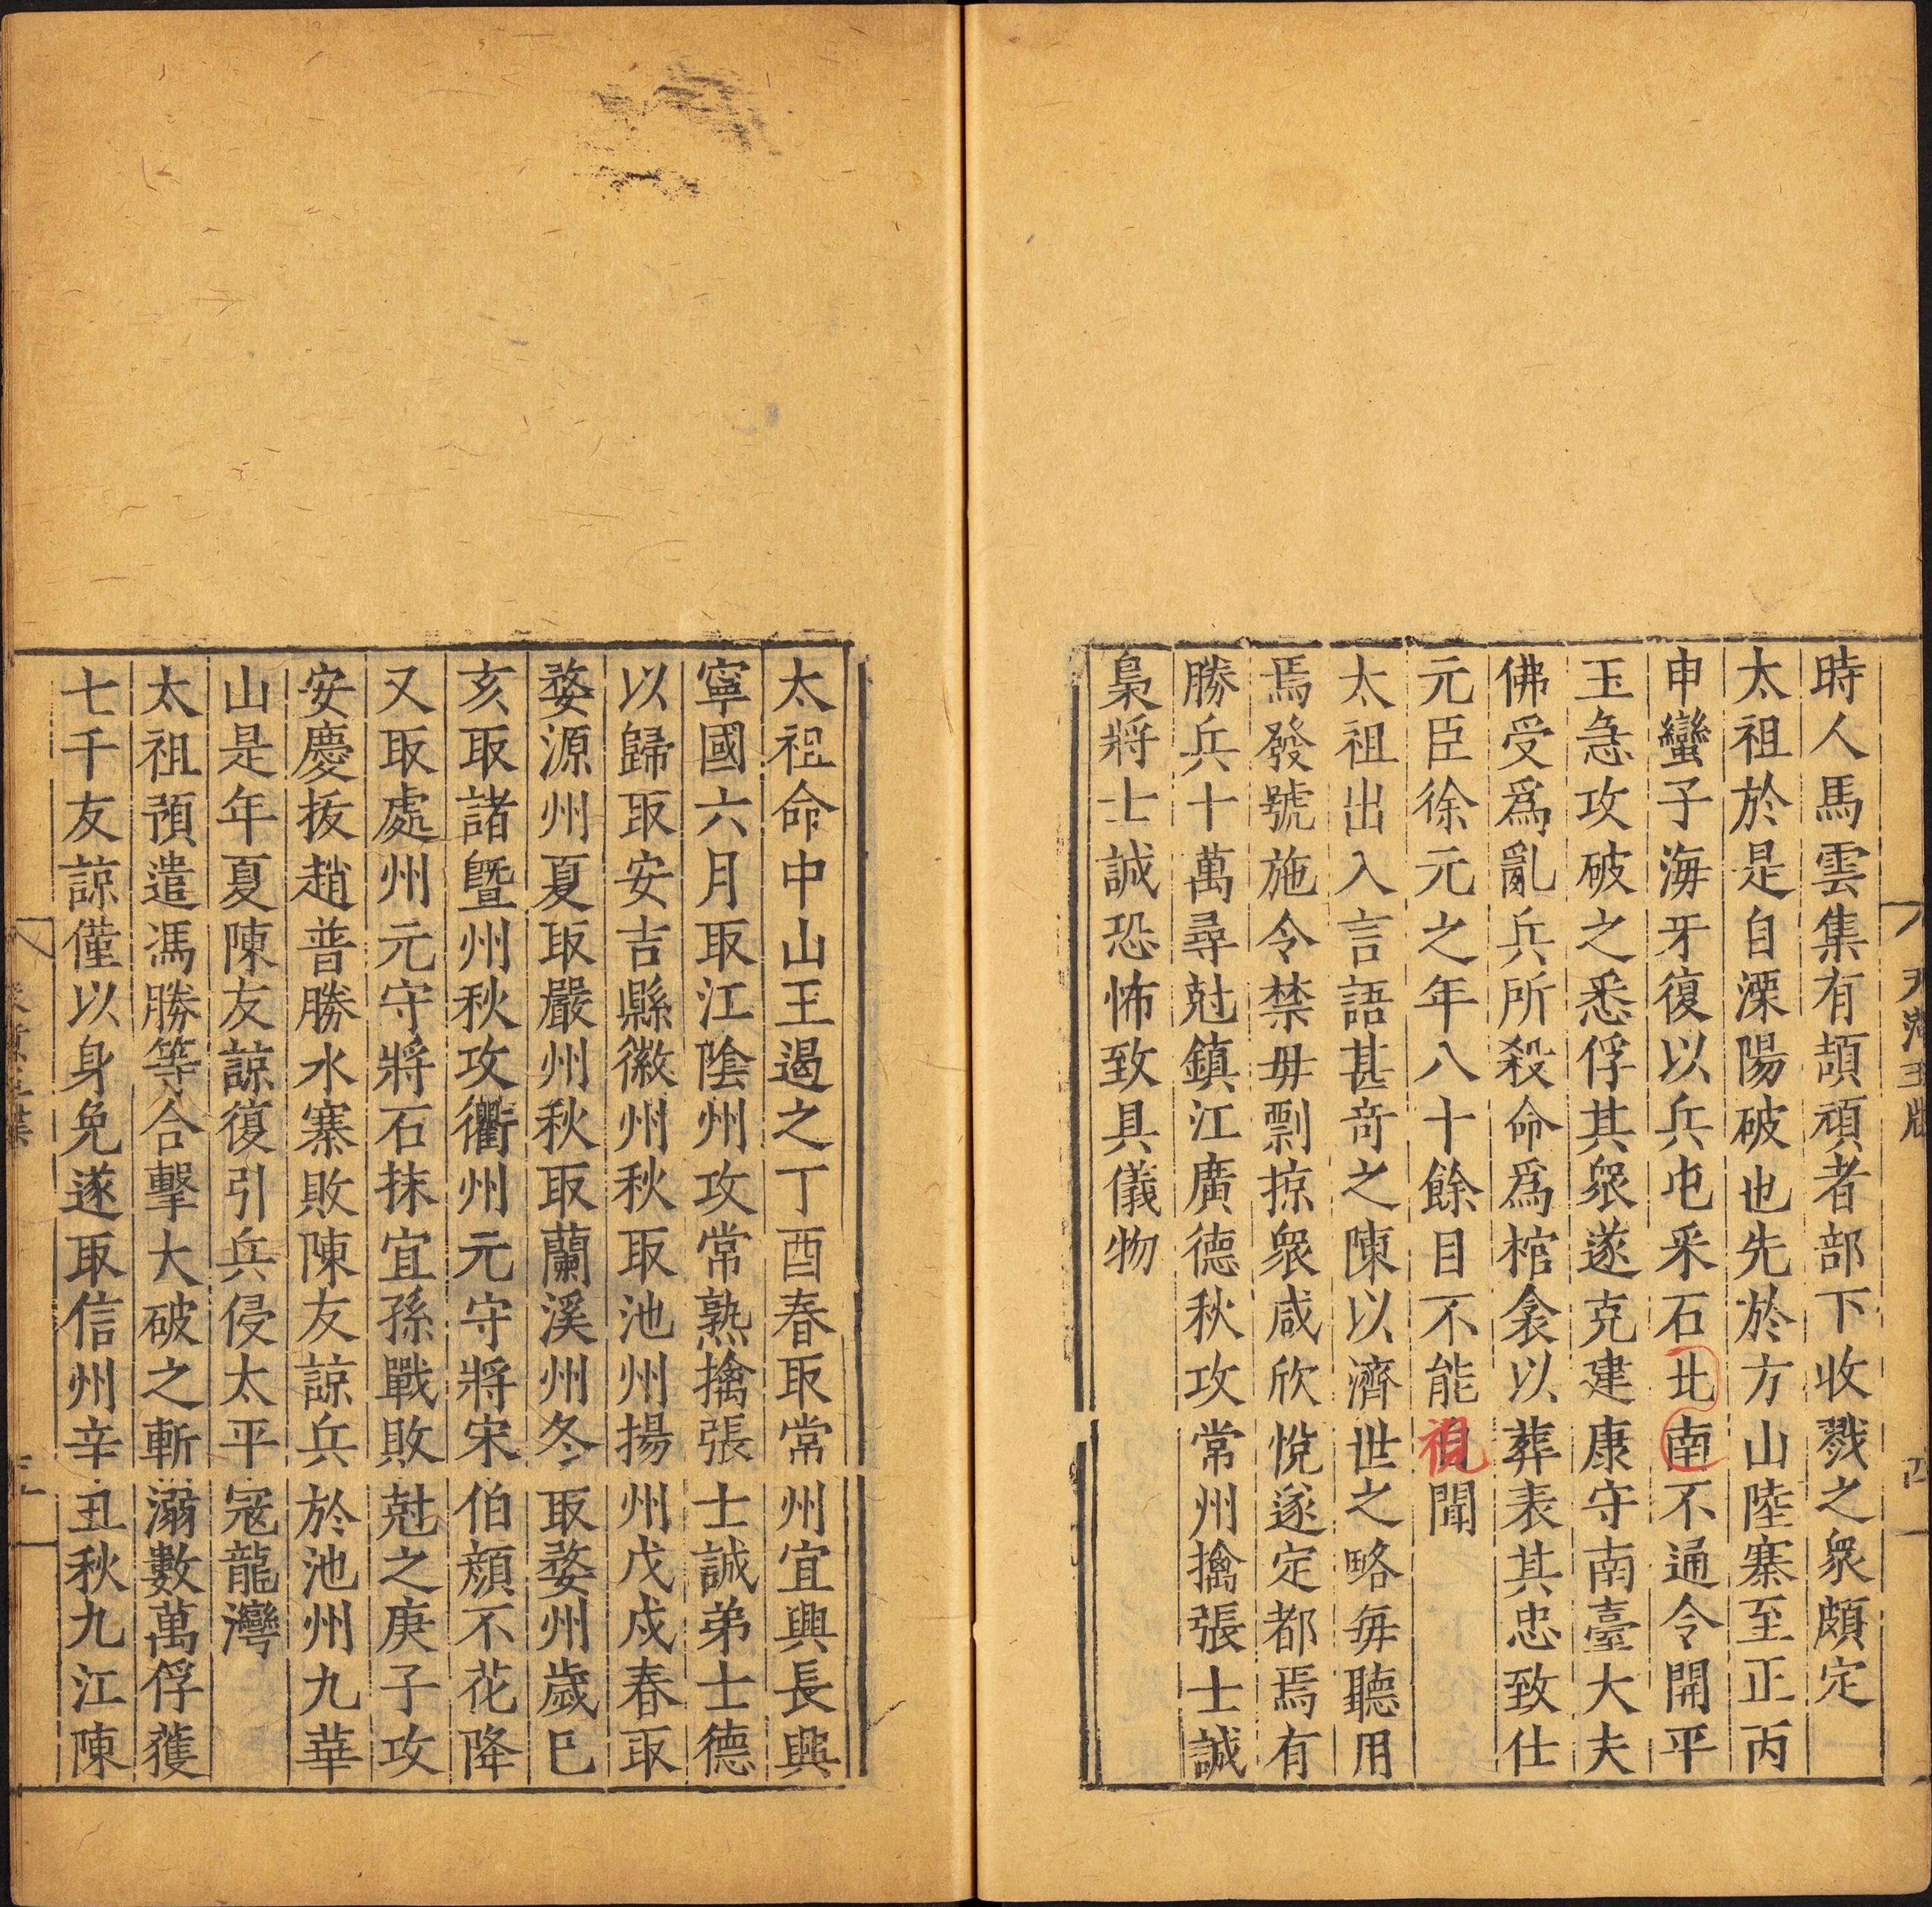 時人馬雲集有頡頏者部下收戮之衆頗定
太祖於是自溧陽破也先於方山陸寨至正丙
申蠻子海牙復以兵屯采石北南不通令開平
王急攻破之悉俘其衆遂克建康守南臺大夫
佛受爲亂兵所殺命爲棺衾以葬表其忠致仕
元臣徐元之年八十餘目不能視聞
太祖出入言語甚奇之陳以濟世之略每聽用
焉發號施令禁毋剽掠衆咸欣悅遂定都焉有
勝兵十萬尋尅鎮江廣德秋攻常州擒張士誠
梟將士誠恐怖致具儀物
太祖命中山王遏之丁酉春取常州宜興長興
寧國六月取江陰州攻常熟擒張士誠弟士德
以歸取安吉縣徽州秋取池州揚州戊戌春取
婺源州夏取嚴州秋取蘭溪州冬取婺州歲巳
亥取諸曁州秋攻衢州元守將宋伯顏不花降
又取處州元守將石抹宜孫戰敗尅之庚子攻
安慶拔趙普勝水寨敗陳友諒兵於池州九華
山是年夏陳友諒復引兵侵太平寇龍灣
太祖預遣馮勝等合擊大破之斬溺數萬俘獲
七千友諒僅以身免遂取信州辛丑秋九江陳